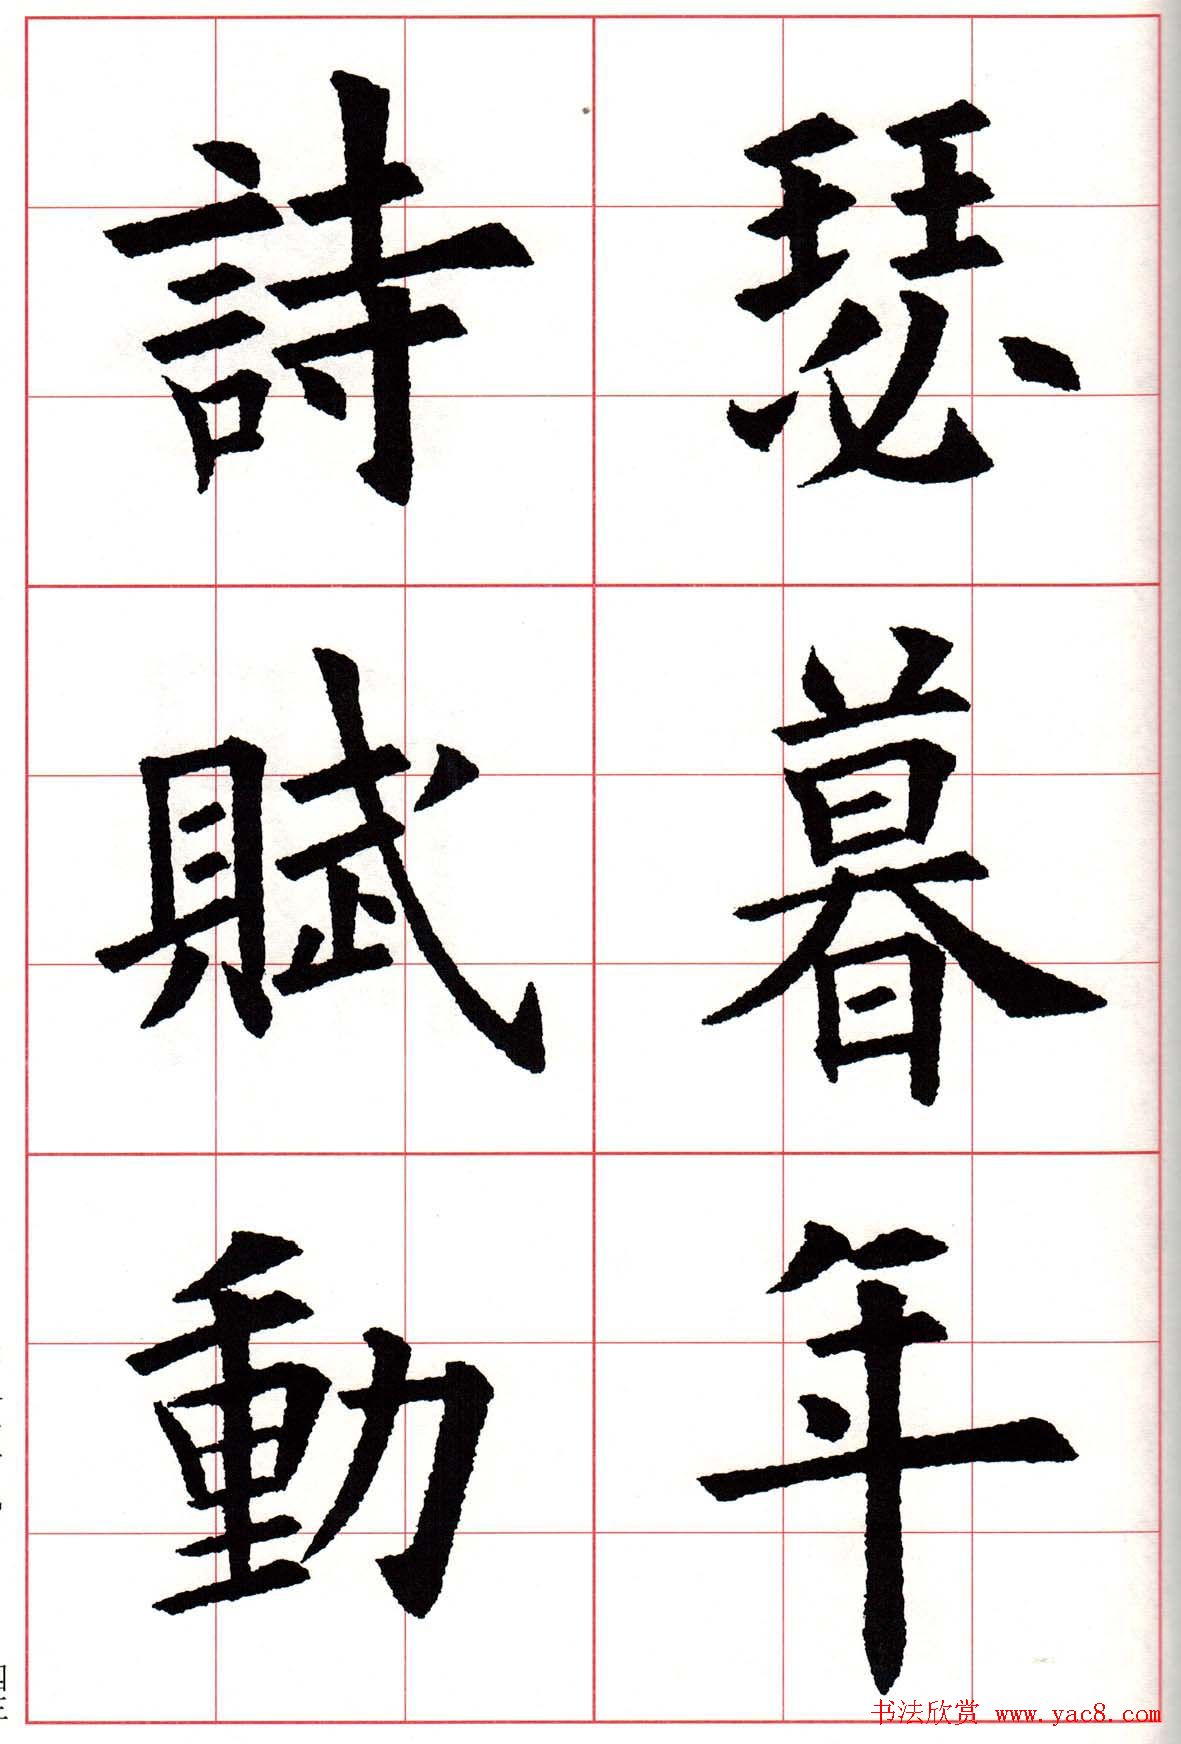 瑟暮年
詩賦動
书法欣赏 www.yac8.com